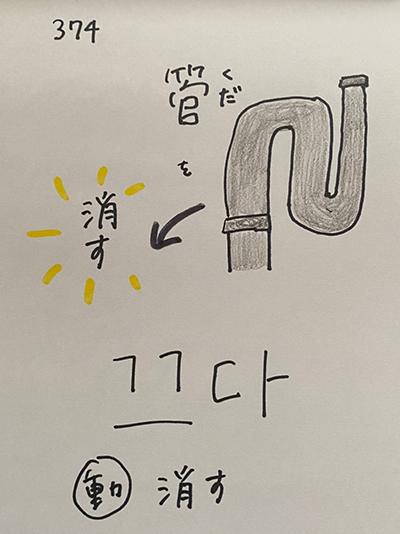 374
管 くだ
を
消す
끄다
動 消す